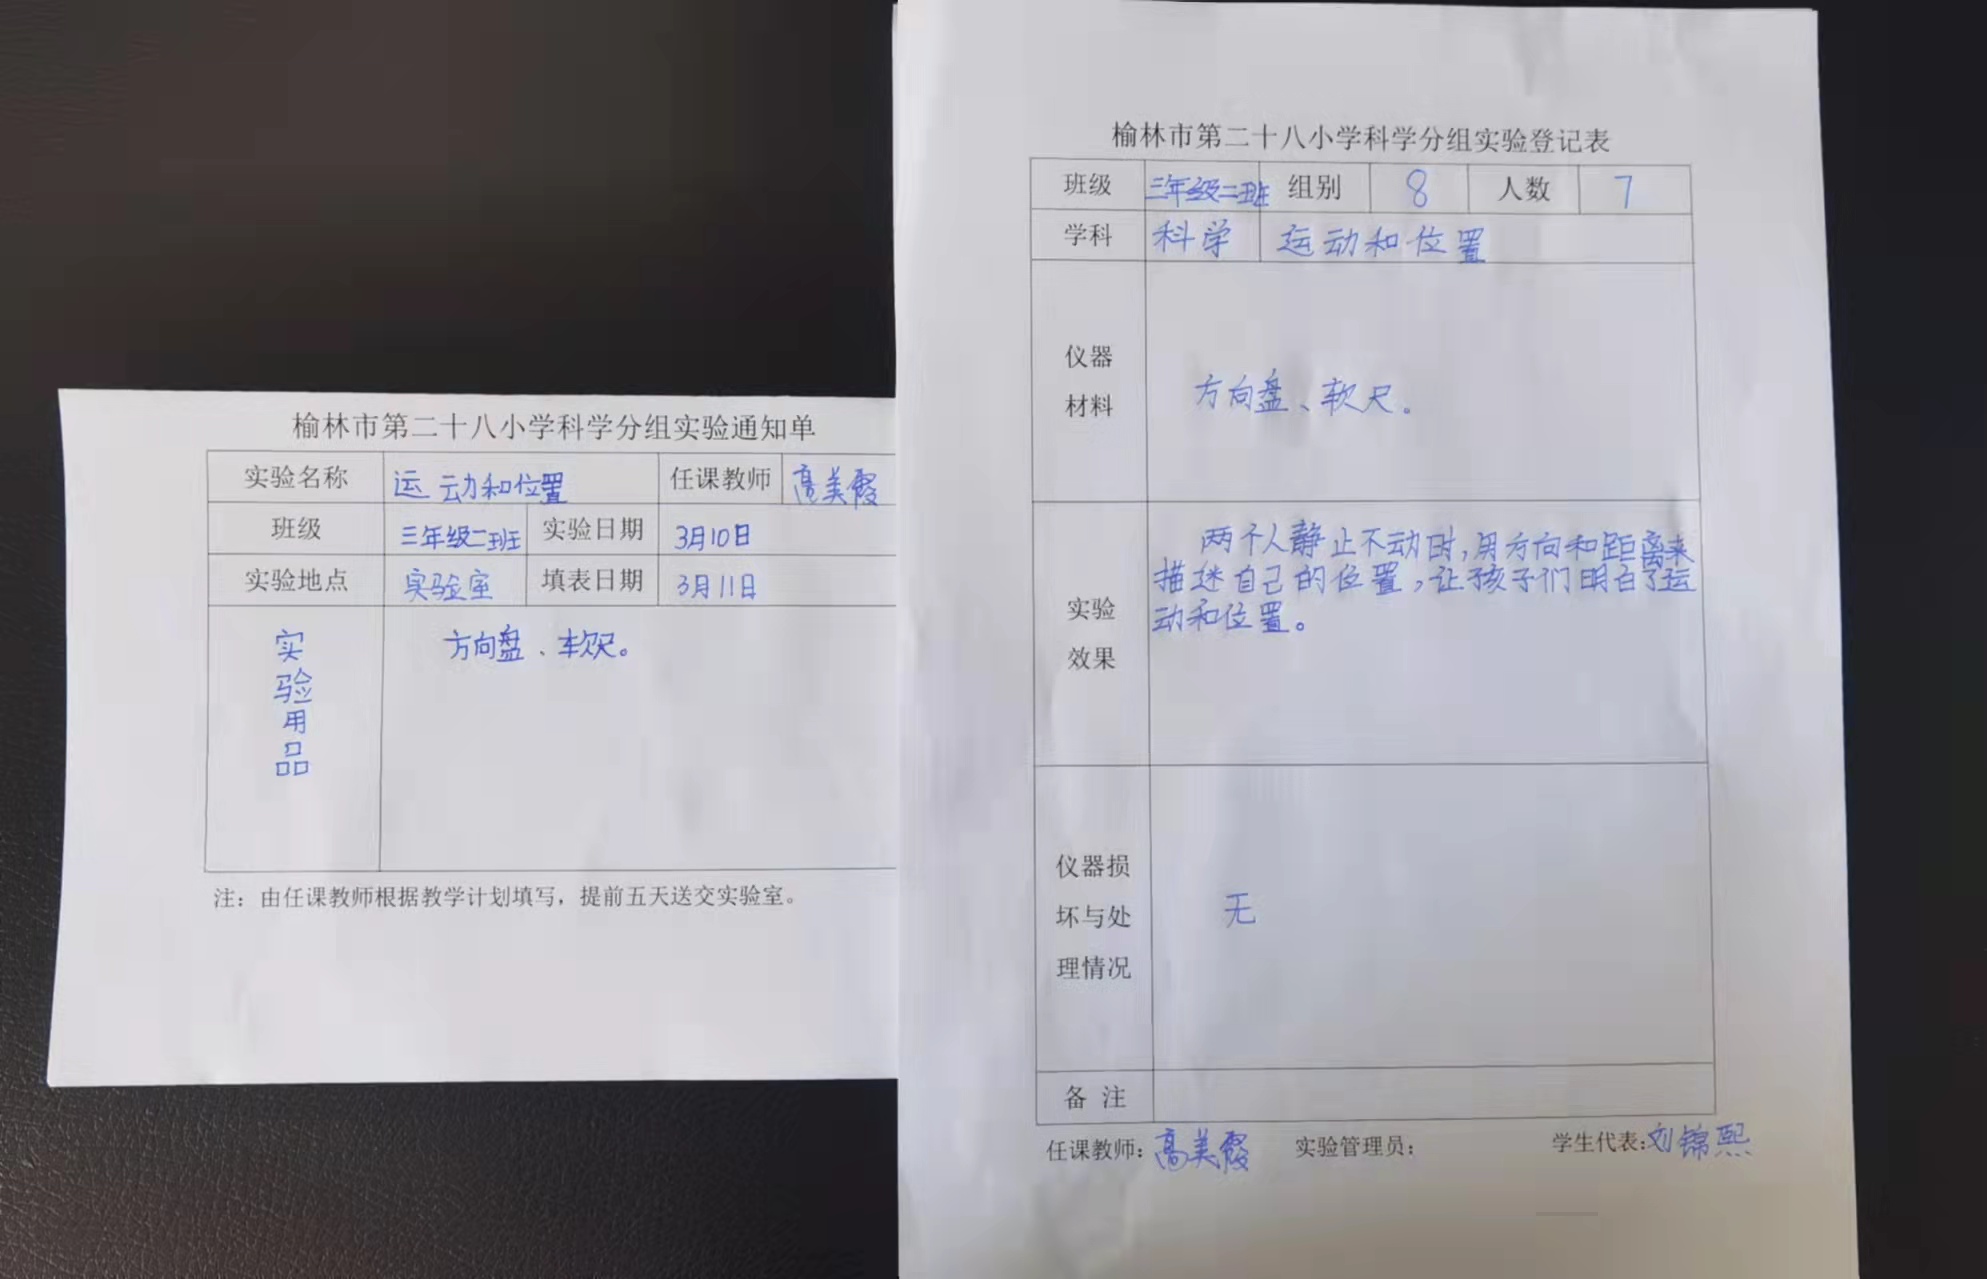 榆林市第二十八小学科学分组实验通知单
实验名称 运动和位置 任课教师 高美霞
班级 三年级二班 实验日期 3月10日
实验地点 实验室 填表日期 3月11日
实验用品 方向盘、软尺。
注：由任课教师根据教学计划填写，提前五天送交实验室。
榆林市第二十八小学科学分组实验登记表
班级 三年级二班 组别 8 人数 7
学科 科学 运动和位置
仪器
材料
方向盘、软尺。
实验
效果
两个人静止不动时，用方向和距离来
描述自己的位置，让孩子们明白了运
动和位置。
仪器损
坏与处
理情况
无
备 注
任课教师：高美霞 实验管理员： 学生代表：刘锦熙